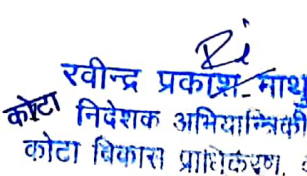 रवीन्द्र प्रकाश माथु
कोटा निदेशक अभियान्त्रिकी
कोटा विकास प्राधिकरण,